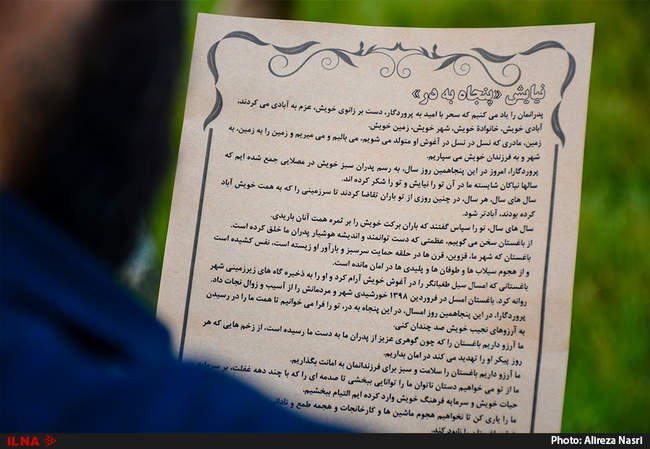 نیایش «پنجاه به در»
پدرانمان را یاد می کنیم که سحر با امید به پروردگار، دست بر زانوی خویش، عزم به آبادی می کردند،
آبادی خویش، خانوادهٔ خویش، شهر خویش، زمین خویش.
زمین، مادری که نسل در نسل در آغوش او متولد می شویم، می بالیم و می میریم و زمین را به زمین، به
شهر و به فرزندان خویش می سپاریم.
پروردگارا، امروز در این پنجاهمین روز سال، به رسم پدران سبز خویش در مصلایی جمع شده ایم که
سالها نیاکان شایسته ما در آن تو را نیایش و تو را شکر کرده اند.
سال های سال، هر سال، در چنین روزی از تو باران تقاضا کردند تا سرزمینی را که به همت خویش آباد
کرده بودند، آبادتر شود.
سال های سال، تو را سپاس گفتند که باران برکت خویش را بر ثمره همت آنان باریدی.
از باغستان سخن می گوییم، عظمتی که دست توانمند و اندیشه هوشیار پدران ما خلق کرده است.
باغستان که شهر ما، قزوین، قرن ها در حلقه حمایت سرسبز و بارآور او زیسته است، نفس کشیده است
و از هجوم سیلاب ها و طوفان ها و پلیدی ها در امان مانده است.
باغستانی که امسال سیل طغیانگر را در آغوش خویش آرام کرد و او را به ذخیره گاه های زیرزمینی شهر
روانه کرد. باغستان امسال در فروردین ۱۳۹۸ خورشیدی شهر و مردمانش را از آسیب و زوال نجات داد.
پروردگارا، در این پنجاهمین روز امسال، در این پنجاه به در، تو را فرا می خوانیم تا همت ما را در رسیدن
به آرزوهای نجیب خویش صد چندان کنی.
ما آرزو داریم باغستان را که چون گوهری عزیز از پدران ما به دست ما رسیده است، از زخم هایی که هر
روز پیکر او را تهدید می کند در امان بداریم.
ما آرزو داریم باغستان را سلامت و سبز برای فرزندانمان به امانت بگذاریم.
ما از تو می خواهیم دستان ناتوان ما را توانایی ببخشی تا صدمه ای را که با چند دهه غفلت، بر
حیات خویش و سرمایه فرهنگ خویش وارد کرده ایم التیام ببخشیم.
ما را یاری کن تا نخواهیم هجوم ماشین ها و کارخانجات و هجمه طمع و
را نابود کند.
ILNA
Photo: Alireza Nasri